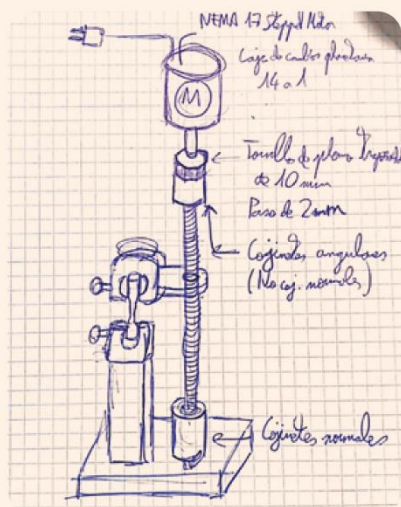 NEMA 17 Stepper Motor
Caja de cambios planetaria
14 a 1
M
Tornillo de plano trapezoidal
de 10 mm
Paso de 2mm
Cojinetes angulares
(No coj. normales)
Cojinetes normales